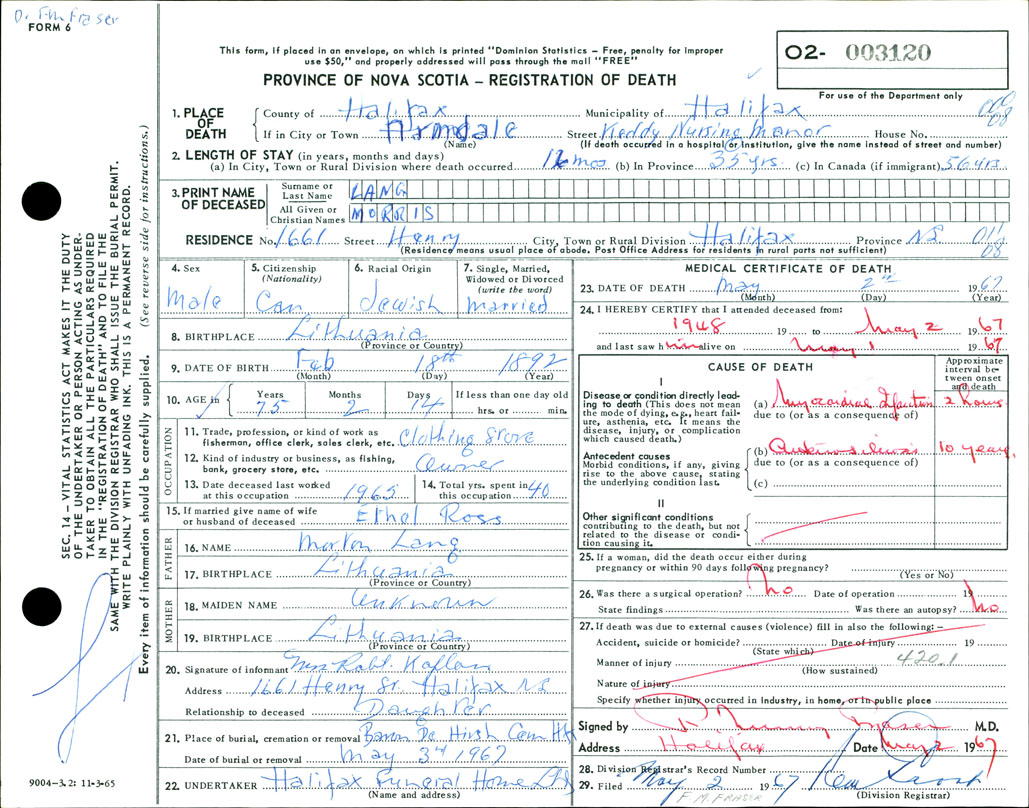 Dr. F.M. Fraser
FORM 6
This form, if placed in an envelope, on which is printed "Dominion Statistics – Free, penalty for improper
use $50," and properly addressed will pass through the mail "FREE"
PROVINCE OF NOVA SCOTIA – REGISTRATION OF DEATH
O2- 003120
For use of the Department only
1. PLACE OF DEATH
County of Halifax Municipality of Halifax
If in City or Town Armdale Street Keddy Nursing Manor House No.
(Name) (If death occurred in a hospital or institution, give the name instead of street and number)
2. LENGTH OF STAY (in years, months and days)
(a) In City, Town or Rural Division where death occurred 12 mos (b) In Province 35 yrs. (c) In Canada (if immigrant) 56 yrs.
3. PRINT NAME OF DECEASED
Surname or Last Name LANG
All Given or Christian Names MORRIS
RESIDENCE No. 1661 Street Henry City, Town or Rural Division Halifax Province NS 011 08
(Residence means usual place of abode. Post Office Address for residents in rural parts not sufficient)
4. Sex Male
5. Citizenship (Nationality) Can
6. Racial Origin Jewish
7. Single, Married, Widowed or Divorced (write the word) married
8. BIRTHPLACE Lithuania
(Province or Country)
9. DATE OF BIRTH Feb 18th 1892
(Month) (Day) (Year)
10. AGE in Years 75 Months 2 Days 14 If less than one day old hrs. or min.
OCCUPATION
11. Trade, profession, or kind of work as fisherman, office clerk, sales clerk, etc. Clothing Store
12. Kind of industry or business, as fishing, bank, grocery store, etc. Owner
13. Date deceased last worked at this occupation 1965
14. Total yrs. spent in this occupation 40
15. If married give name of wife or husband of deceased Ethel Ross
FATHER
16. NAME Morton Lang
17. BIRTHPLACE Lithuania
(Province or Country)
MOTHER
18. MAIDEN NAME Unknown
19. BIRTHPLACE Lithuania
(Province or Country)
20. Signature of informant Mrs Robt. Kaplan
Address 1661 Henry St. Halifax NS
Relationship to deceased Daughter
21. Place of burial, cremation or removal Baron De Hirsh Cem Hfx
Date of burial or removal May 3rd 1967
22. UNDERTAKER Halifax Funeral Home Ltd
(Name and address)
MEDICAL CERTIFICATE OF DEATH
23. DATE OF DEATH May 2nd 1967
(Month) (Day) (Year)
24. I HEREBY CERTIFY that I attended deceased from:
1948 19 to May 2 1967
and last saw him alive on May 1 1967
CAUSE OF DEATH
Approximate interval between onset and death
I
Disease or condition directly leading to death (This does not mean the mode of dying, e.g., heart failure, asthenia, etc. It means the disease, injury, or complication which caused death.)
(a) Myocardial Infarction 2 hours
due to (or as a consequence of)
Antecedent causes
Morbid conditions, if any, giving rise to the above cause, stating the underlying condition last.
(b) 10 years
due to (or as a consequence of)
(c)
II
Other significant conditions contributing to the death, but not related to the disease or condition causing it.
25. If a woman, did the death occur either during pregnancy or within 90 days following pregnancy?
(Yes or No)
26. Was there a surgical operation? No Date of operation 19
State findings Was there an autopsy? No
27. If death was due to external causes (violence) fill in also the following: –
Accident, suicide or homicide? Date of injury 19
(State which)
Manner of injury 420.1
(How sustained)
Nature of injury
Specify whether injury occurred in Industry, in home, or in public place
Signed by Fraser M.D.
Address Halifax Date May 2 1967
28. Division Registrar's Record Number
29. Filed May 2 1967
(Division Registrar)
F M. FRASER
SEC. 14 – VITAL STATISTICS ACT MAKES IT THE DUTY
OF THE UNDERTAKER OR PERSON ACTING AS UNDER-
TAKER TO OBTAIN ALL THE PARTICULARS REQUIRED
IN THE "REGISTRATION OF DEATH" AND TO FILE THE
SAME WITH THE DIVISION REGISTRAR WHO SHALL ISSUE THE BURIAL PERMIT.
WRITE PLAINLY WITH UNFADING INK. THIS IS A PERMANENT RECORD.
Every item of information should be carefully supplied. (See reverse side for instructions.)
9004–3.2: 11-3-65